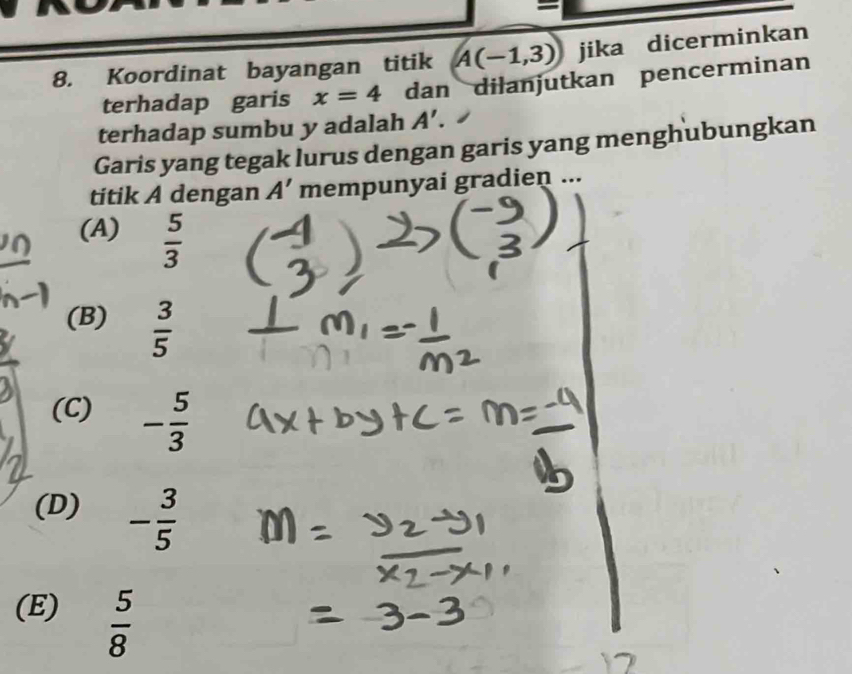 8. Koordinat bayangan titik A(−1,3) jika dicerminkan
terhadap garis x = 4 dan dilanjutkan pencerminan
terhadap sumbu y adalah A′.
Garis yang tegak lurus dengan garis yang menghubungkan
titik A dengan A′ mempunyai gradien ...
(A) 5/3
(B) 3/5
(C) −5/3
(D) −3/5
(E) 5/8
(-1 3) => (-9 3)
⊥ m1 = -1/m2
ax + by + c = m = -a/b
m = y2-y1/x2-x1
= 3-3